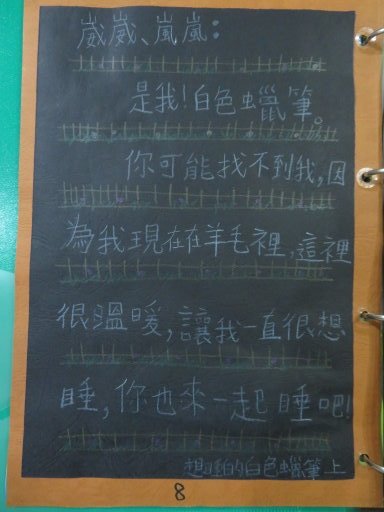 崴崴、嵐嵐：
是我！白色蠟筆。
你可能找不到我，因
為我現在在羊毛裡，這裡
很溫暖，讓我一直很想
睡，你也來一起睡吧！
想睡的白色蠟筆上
8